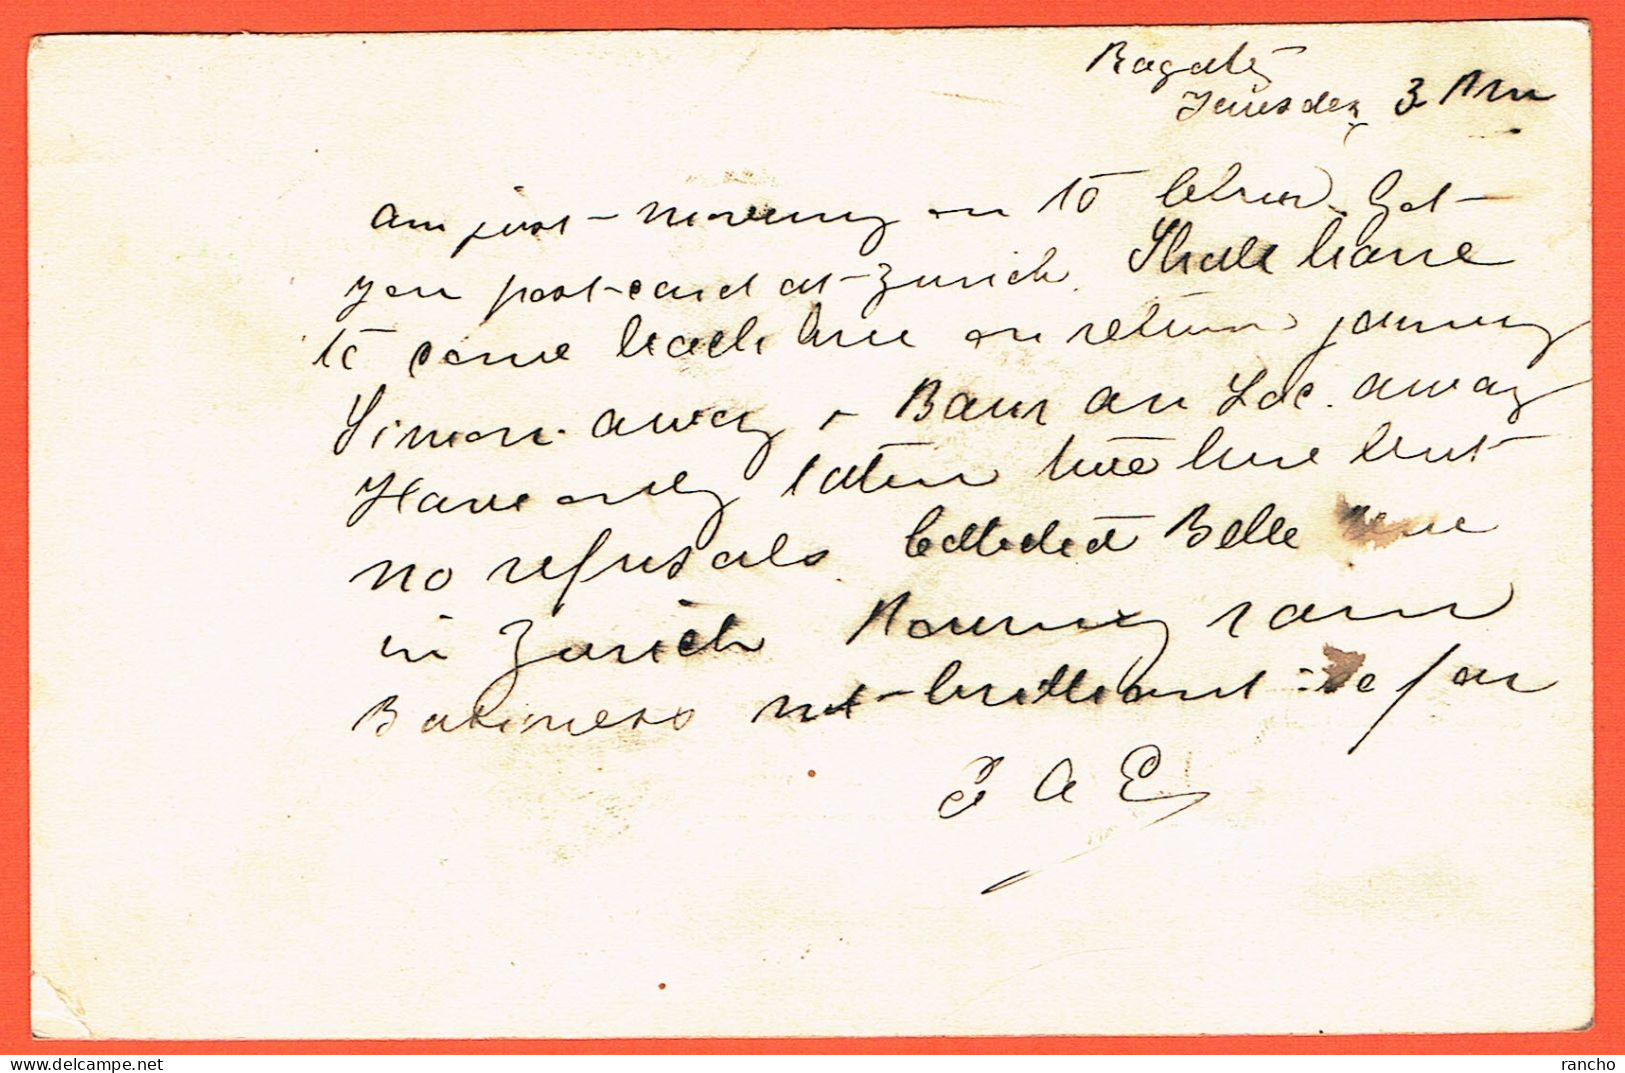 Ragatz
Thursday 3 PM
Am just moving on to Chur. Got
your post-card at Zurich. Shall have
to come back here on return journey
Simon away + Baur au Lac away
Have only taken here but
no refusals. Collected Belle
in Zurich Morning rain
Business not brilliant so far
E A E
rancho
delcampe.net